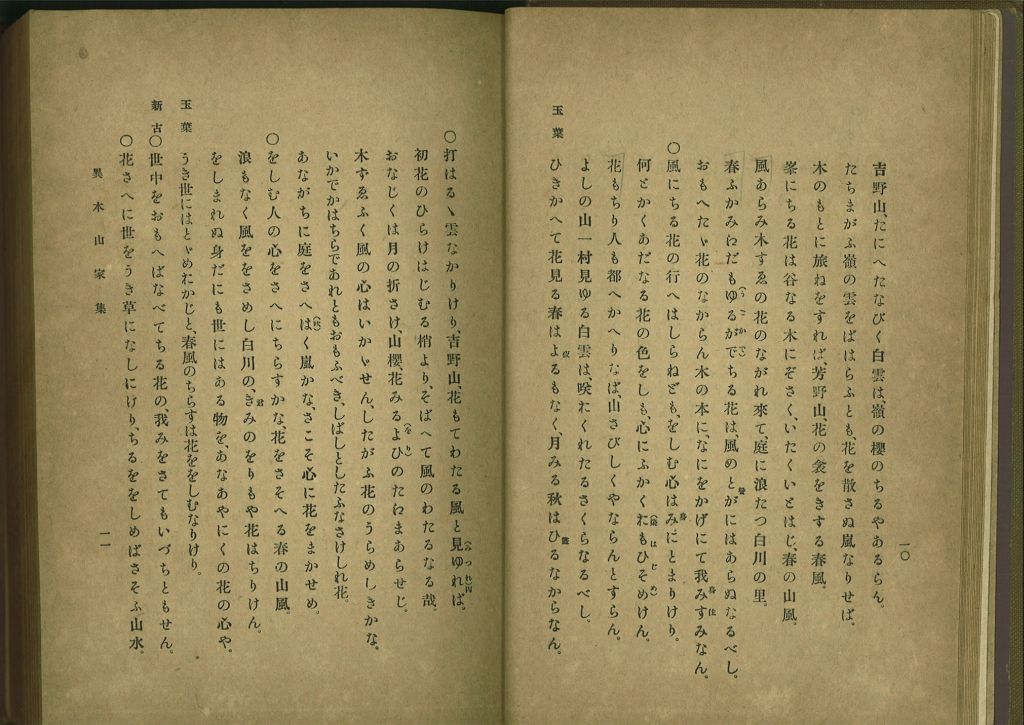 一〇
吉野山、たにへたなびく白雲は、嶺の櫻のちるやあるらん。
たちまがふ嶺の雲をばはらふとも、花を散さぬ嵐なりせば。
木のもとに旅ねをすれば、芳野山、花の衾をきする春風。
峯にちる花は谷なる木にぞさく、いたくいとはじ、春の山風。
風あらみ木すゑの花のながれ來て、庭に浪たつ白川の里。
春ふかみ、えだもゆるがでちる花は、風のとがにはあらぬなるべし。
おもへたゞ花のなからん木の本に、なにをかげにて我みすみなん。
〇風にちる花の行へはしらねども、をしむ心はみにとまりけり。
何とかくあだなる花の色をしも、心にふかくおもひそめけん。
花もちり人も都へかへりなば、山さびしくやならんとすらん。
よしの山一村見ゆる白雲は、咲おくれたるさくらなるべし。
玉葉 ひきかへて花見る春はよるもなく、月みる秋はひるなからなん。
〇打はるゝ雲なかりけり、吉野山、花もてわたる風と見ゆれば。
初花のひらけはじむる梢より、そばへて風のわたるなる哉。
おなじくは月の折さけ、山櫻、花みるよひのたえまあらせじ。
木すゑふく風の心はいかゞせん、したがふ花のうらめしきかな。
いかでかはちらであれともおもふべき、しばしとしたふなさけしれ花。
あながちに庭をさへはく嵐かな、さこそ心に花をまかせめ。
〇をしむ人の心をさへにちらすかな、花をさそへる春の山風。
浪もなく風ををさめし白川の、きみのをりもや花はちりけん。
をしまれぬ身だにも世にはある物を、あなあやにくの花の心や。
玉葉 うき世にはとゞめおかじと、春風のちらすは花ををしむなりけり。
新古〇世中をおもへばなべてちる花の、我みをさてもいづちともせん。
〇花さへに世をうき草になしにけり、ちるををしめばさそふ山水。
異本山家集
一一